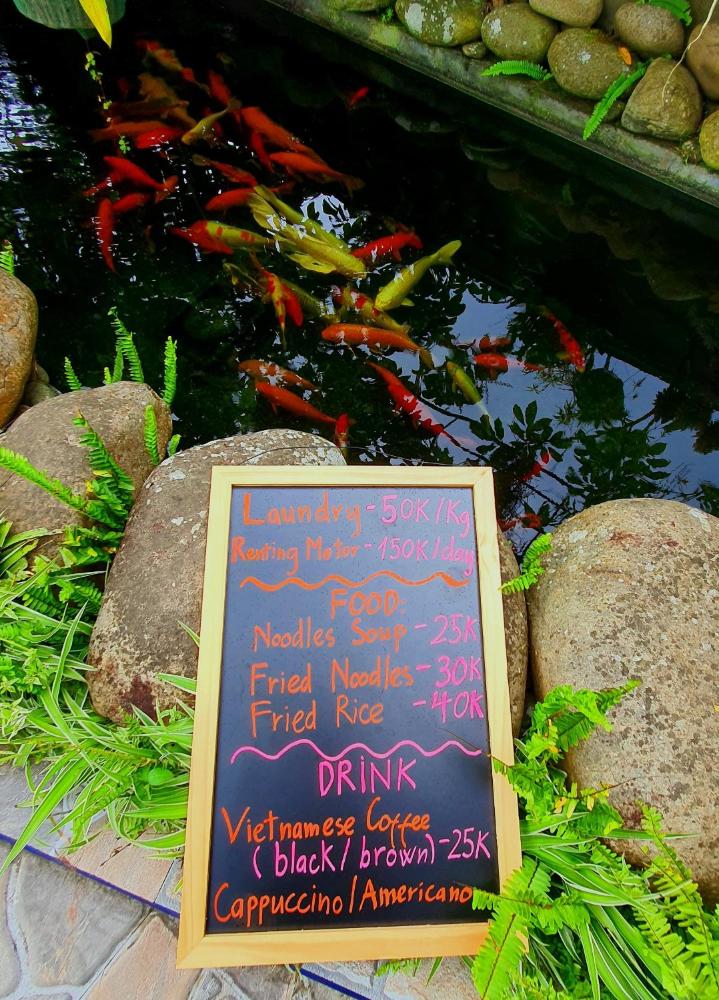 Laundry - 50K/Kg
Renting Motor - 150K/day
FOOD:
Noodles Soup - 25K
Fried Noodles - 30K
Fried Rice - 40K
DRINK
Vietnamese Coffee
(black/brown) - 25K
Cappuccino/Americano